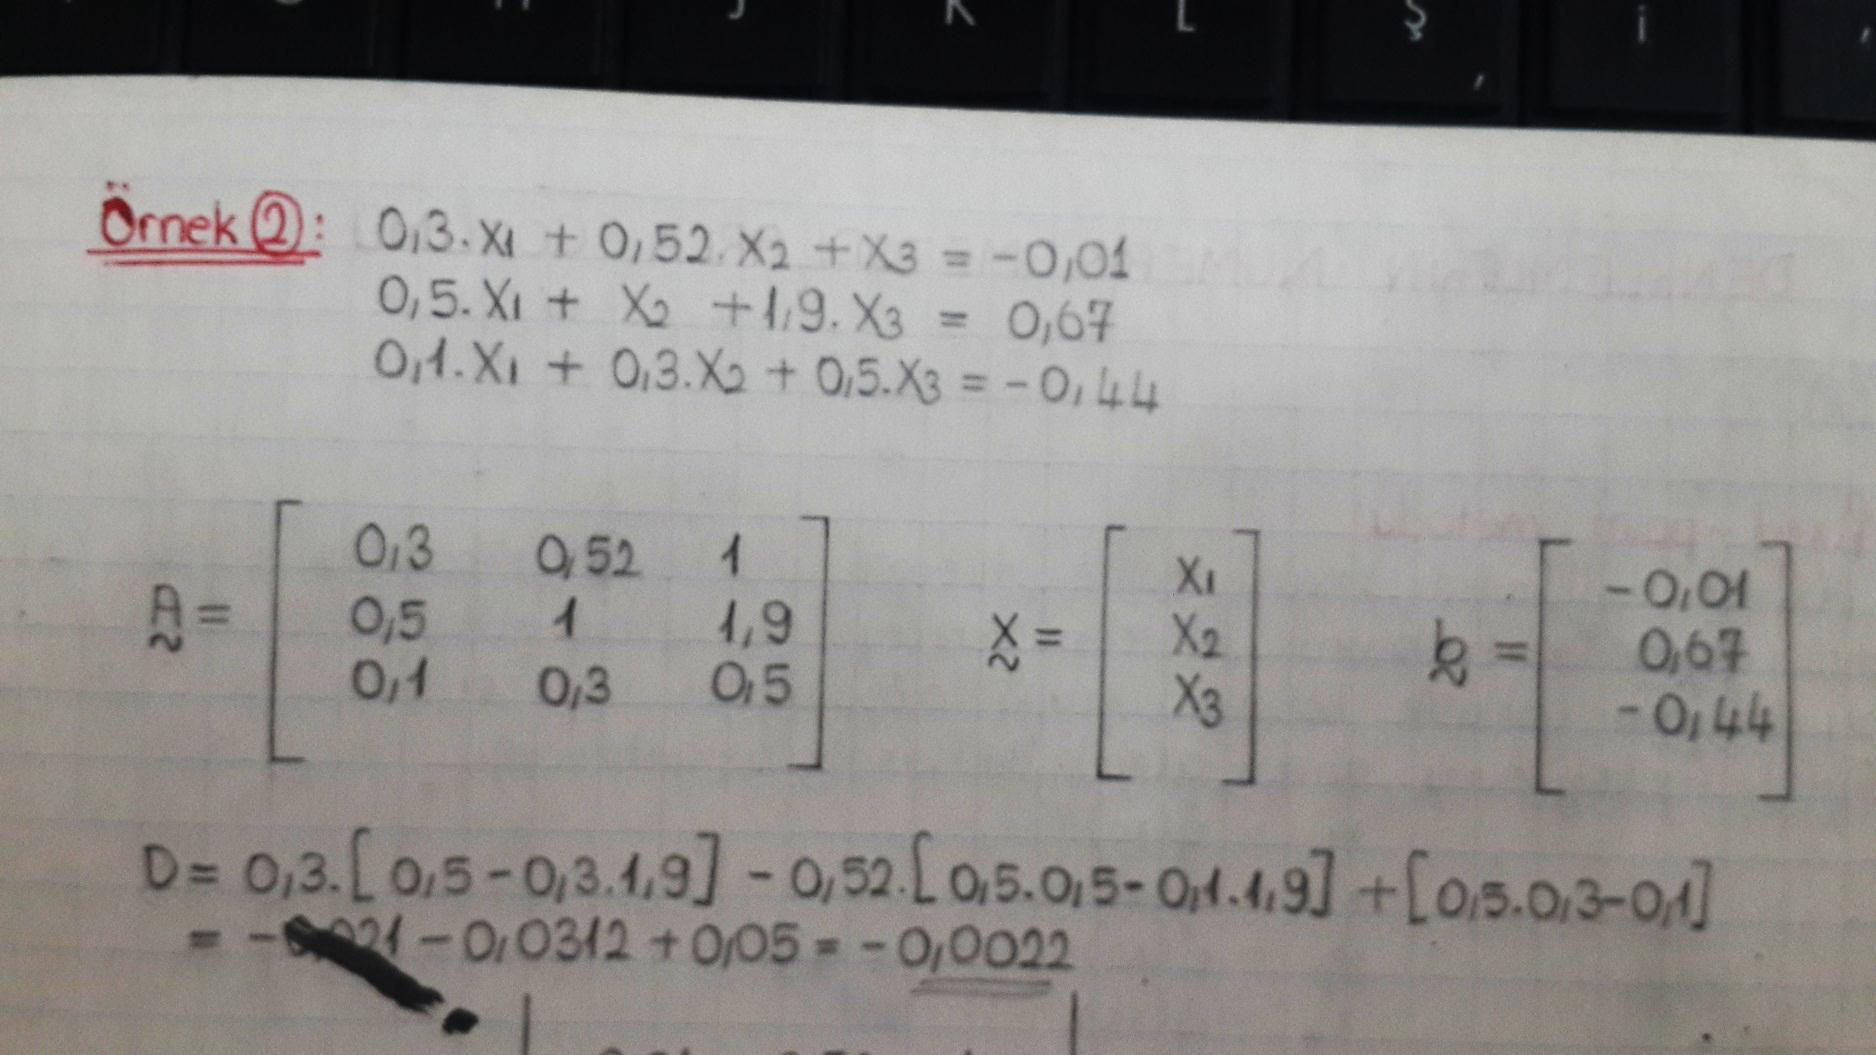 J K L Ş i ,
Örnek 2: 0,3.x1 + 0,52.x2 + x3 = -0,01
0,5.x1 + x2 + 1,9.x3 = 0,67
0,1.x1 + 0,3.x2 + 0,5.x3 = -0,44
A = [ 0,3 0,52 1
0,5 1 1,9
0,1 0,3 0,5 ]
x = [ x1
x2
x3 ]
b = [ -0,01
0,67
-0,44 ]
D = 0,3.[0,5-0,3.1,9] - 0,52.[0,5.0,5-0,1.1,9] + [0,5.0,3-0,1]
= -0,021 - 0,0312 + 0,05 = -0,0022